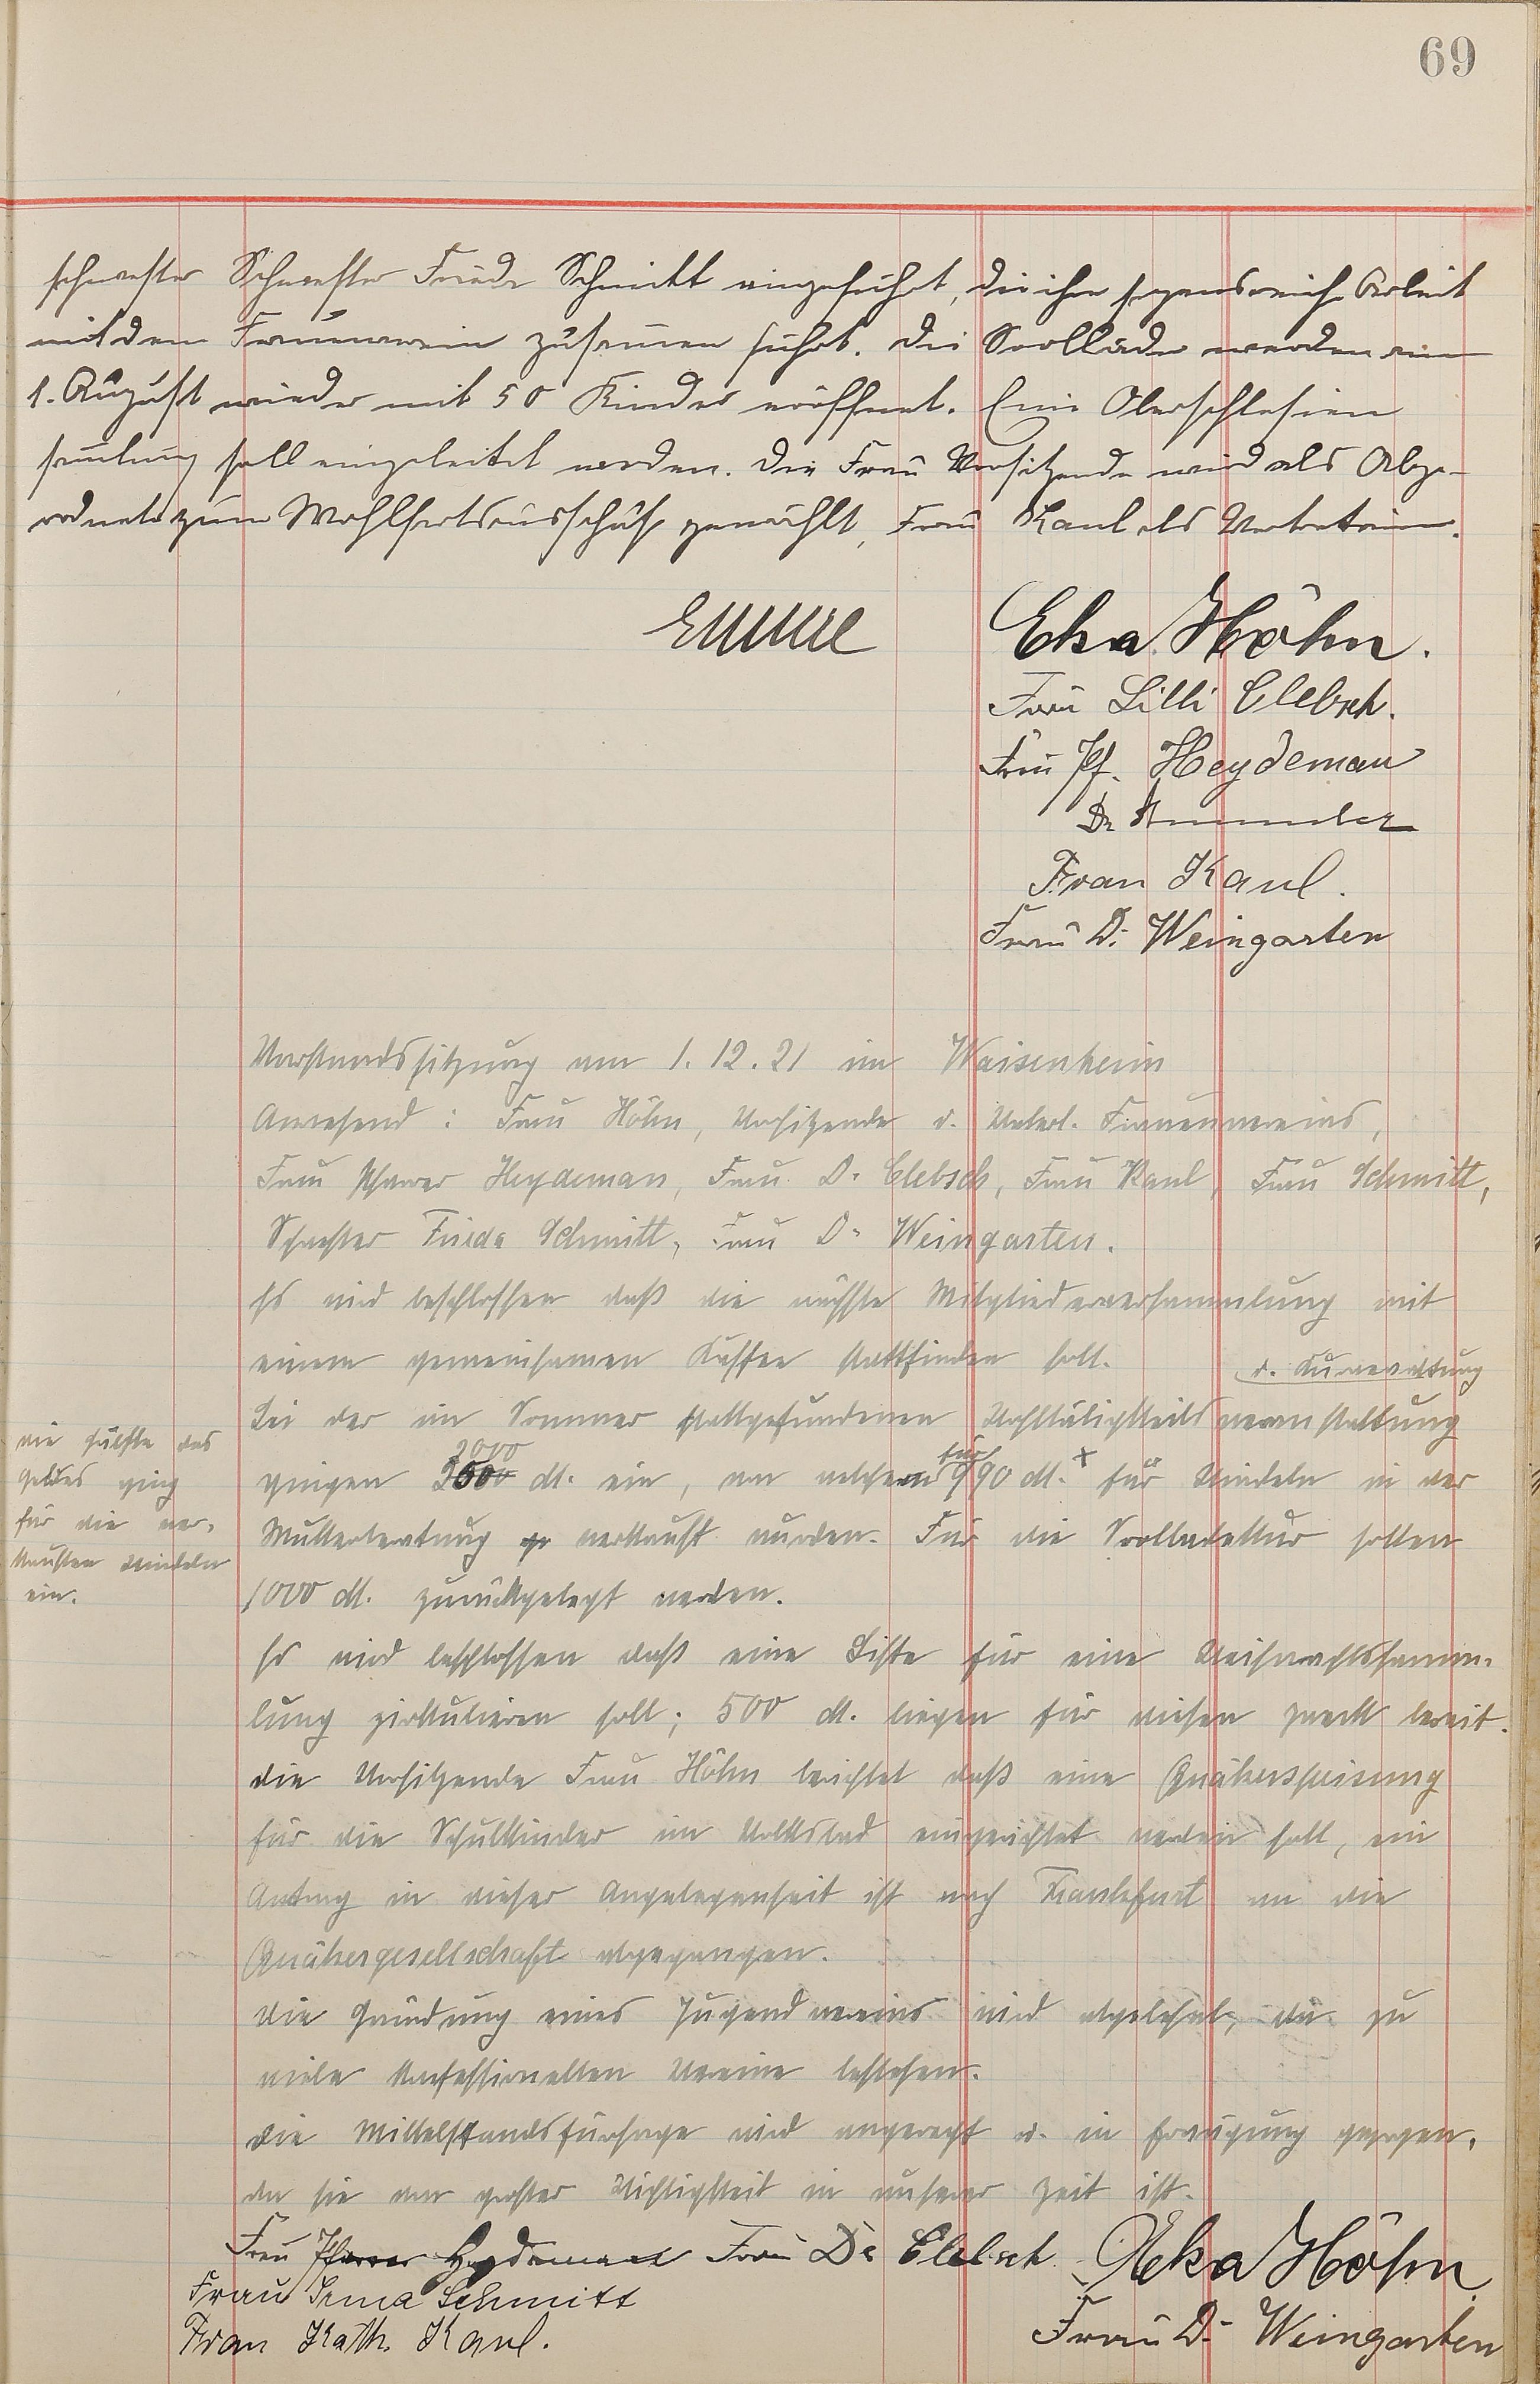 69
schwester Schwester Frieda Schmitt eingeführt, die ihre segensreiche Arbeit
mit dem Frauenverein zusammen führt. Die Soolbäder werden am
1. August wieder mit 50 Kinder eröffnet. Eine Oberschlesien
samlung soll eingeleitet werden. Die Frau Vorsitzende wird als Abge-
ordnete zum Wohlfartsausschuß gewählt, Frau Kaul als Vertreterin.
Eka Höhn.
Frau Lilli Clebsch.
Frau Pf. Heydeman
Dr
Frau Kaul.
Frau Dr Weingarten
Vorstandssitzung am 1.12.21 im Waisenheim
Anwesend: Frau Höhn, Vorsitzende d. Vaterl. Frauenvereins,
Frau Pfarrer Heydeman, Frau Dr Clebsch, Frau Kaul, Frau Schmitt,
Schwester Frieda Schmitt, Frau Dr Weingarten.
Es wird beschlossen daß die nächste Mitgliederversammlung mit
einem gemeinsamen Kaffee stattfinden soll.
d. Kurverwaltung
Bei der im Sommer stattgefundenen Wohltätigkeitsveranstaltung
2000
gingen M. ein, von welchen für 990 M.x für Windeln in der
die Hälfte des
Geldes ging
für die ver-
kauften Windeln
ein.
Mutterberatung verkauft wurden. Für die Soolbadekur sollen
1000 M. zurückgelegt werden.
Es wird beschlossen daß eine Liste für eine Weihnachtssamm-
lung zirkulieren soll; 500 M. liegen für diesen Zweck bereit.
Die Vorsitzende Frau Höhn berichtet daß eine Quäkerspeisung
für die Schulkinder im Volksbad eingerichtet werden soll, ein
Antrag in dieser Angelegenheit ist nach Frankfurt an die
Quäkergesellschaft abgegangen.
Die Gründung eines Jugendvereins wird abgelehnt, da zu
viele konfessionellen Vereine bestehen.
Die Mittelstandsfürsorge wird angeregt u. in Erwägung gezogen,
da sie von großer Wichtigkeit in unserer Zeit ist.
Frau Pfarrer Heydeman Frau Dr Clebsch Eka Höhn.
Frau Irma Schmitt
Frau Käth. Kaul.
Frau Dr Weingarten